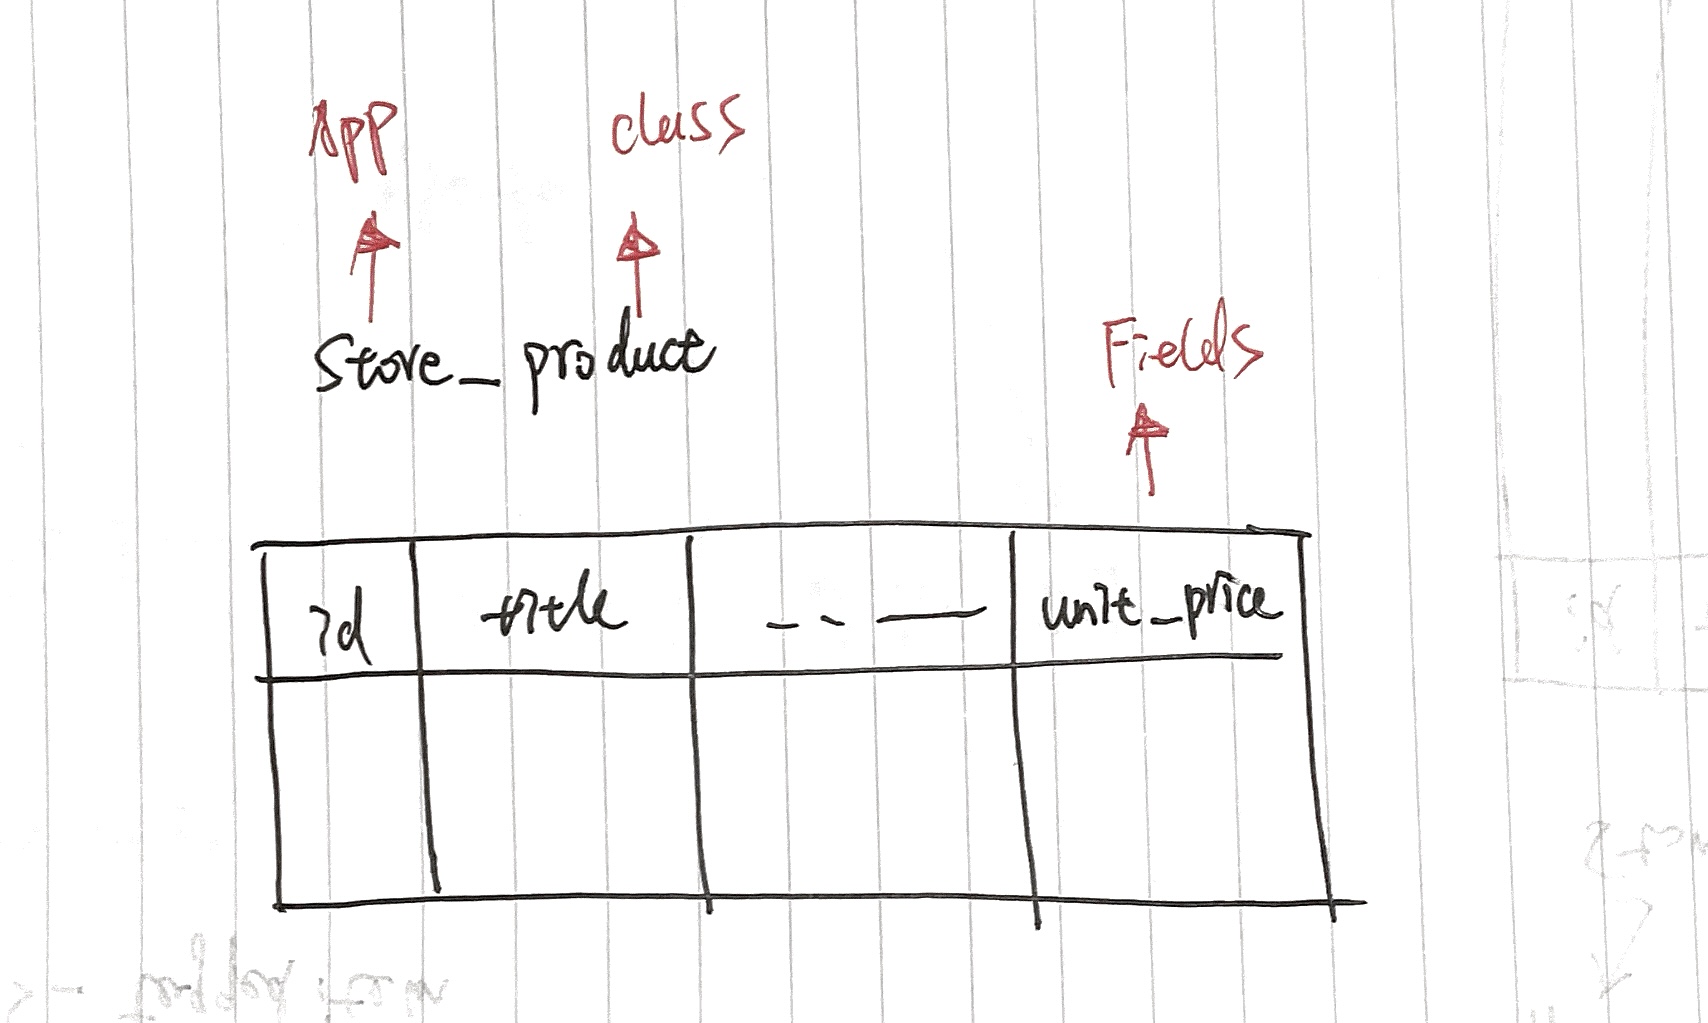 App class
Store_product
Fields
id title -- — unit_price